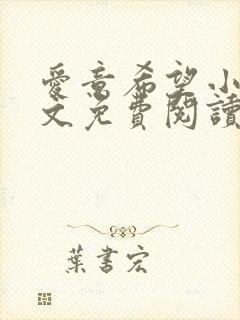 愛意希望小
文免費閱讀
葉書宏